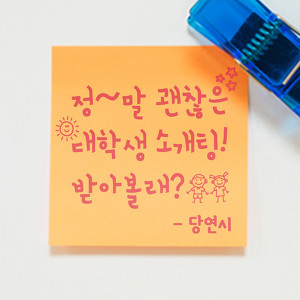 정~말 괜찮은
대학생 소개팅!
받아볼래?
- 당연시